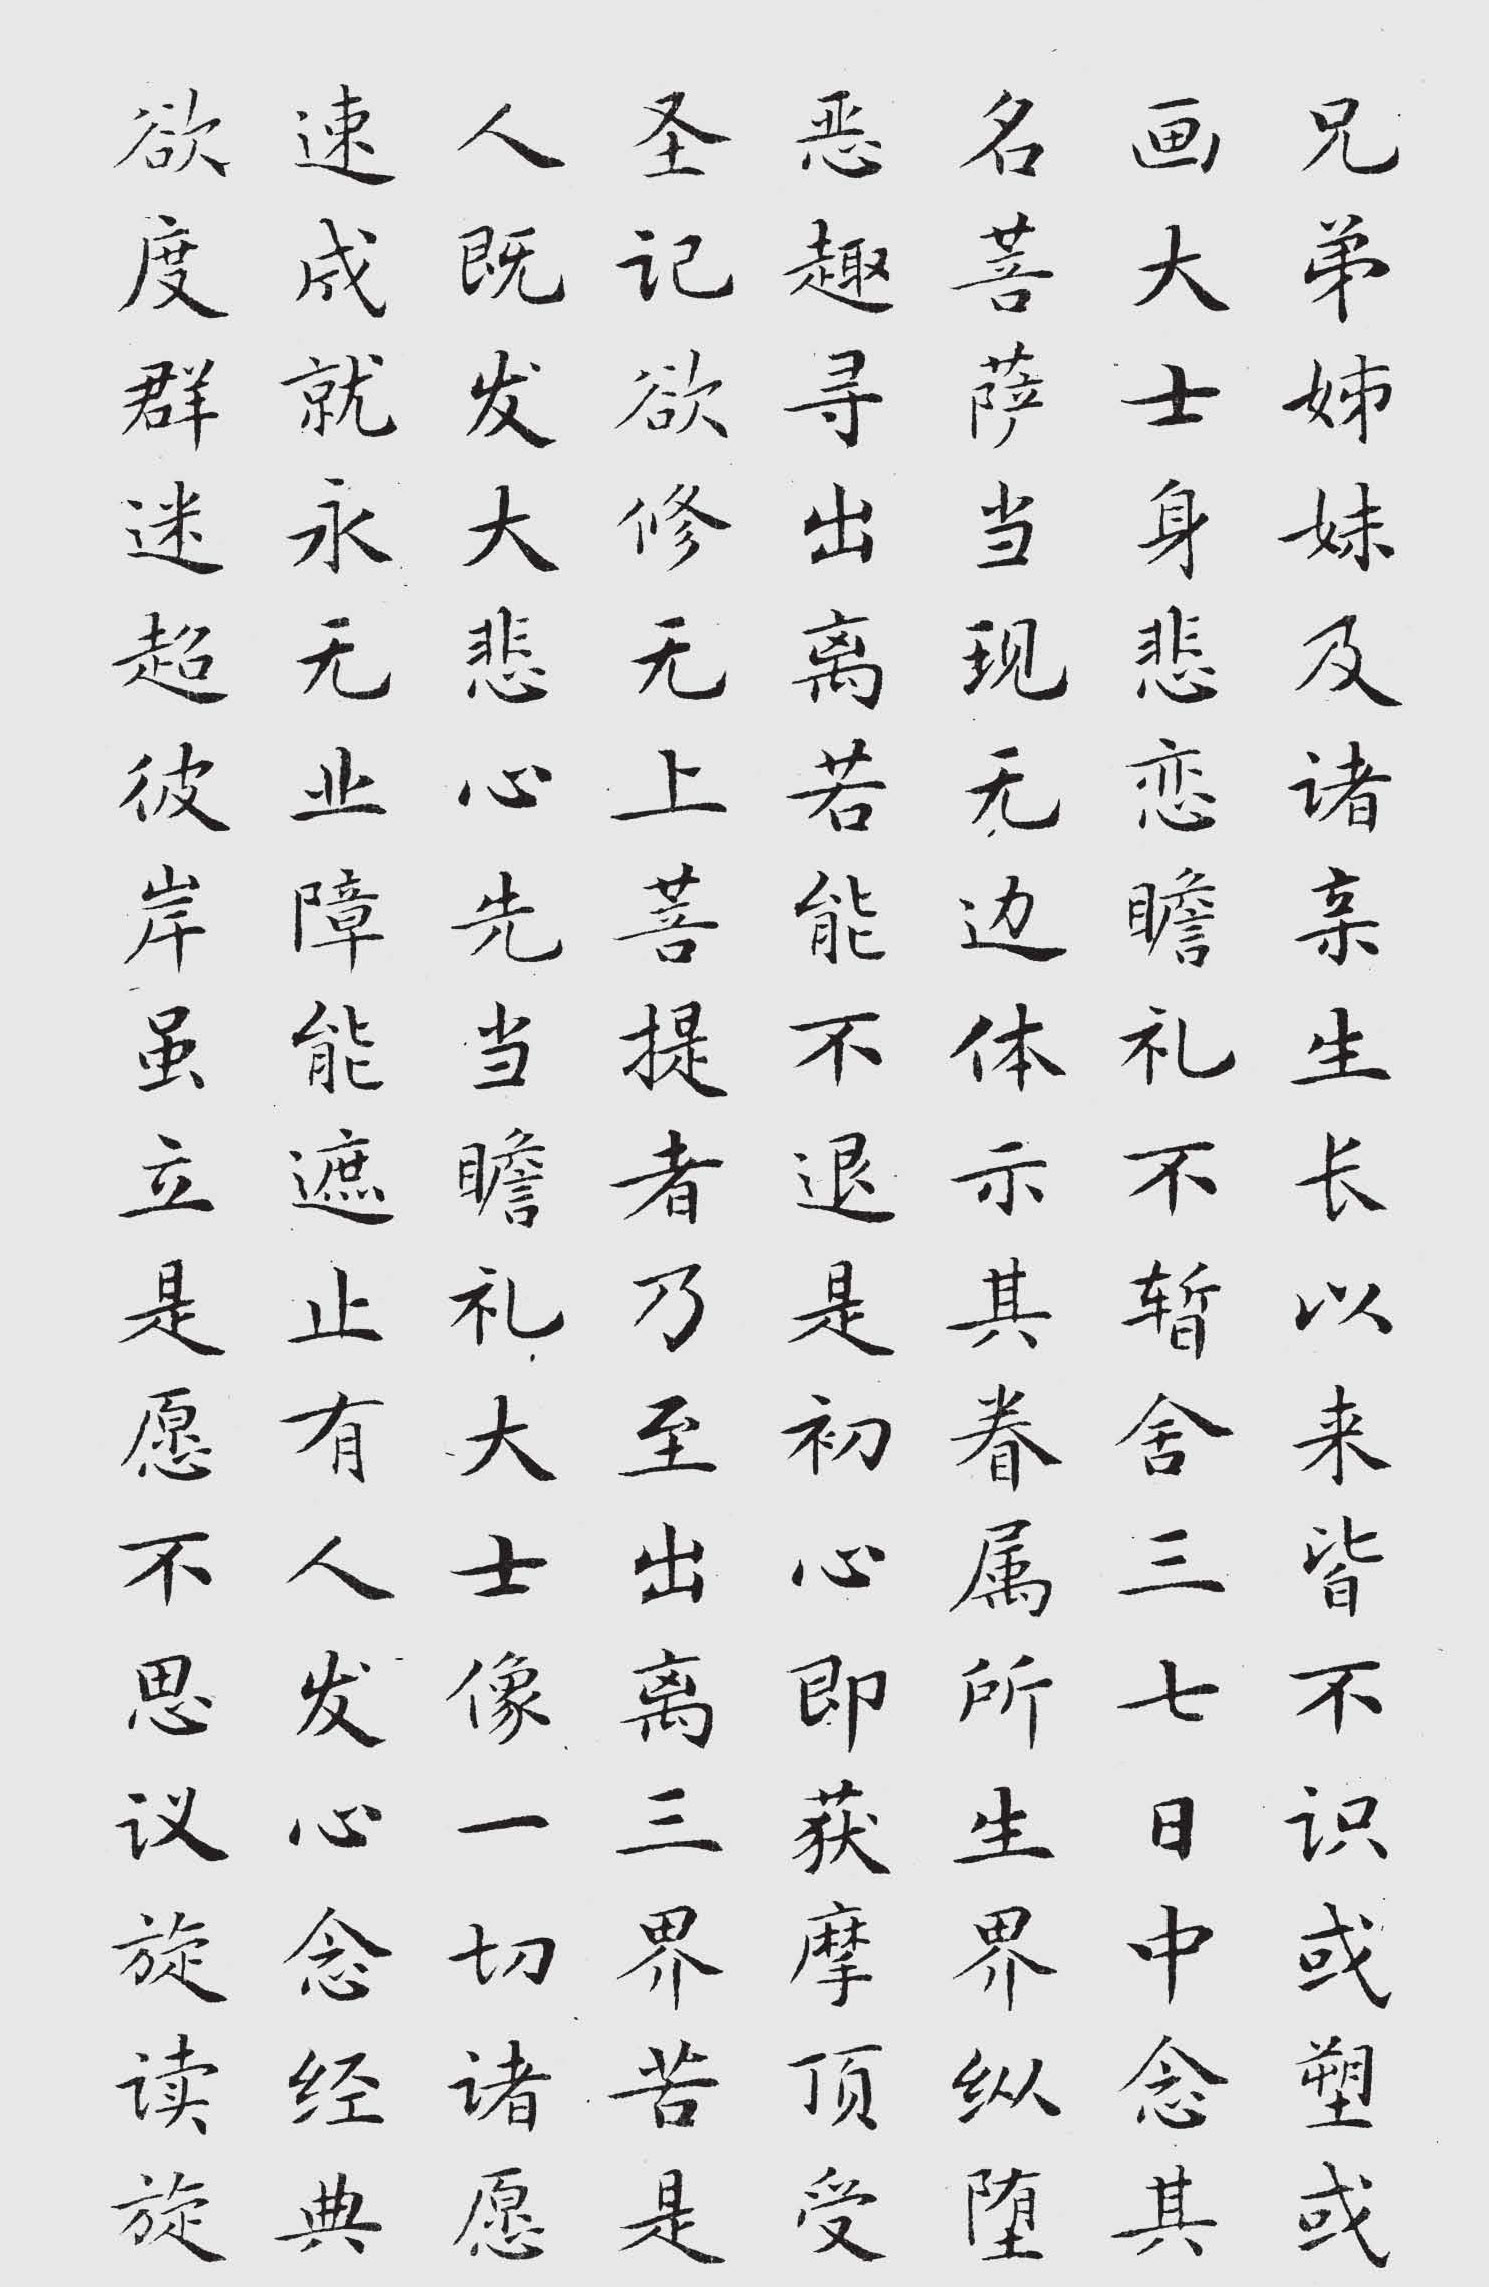 兄弟姊妹及诸亲生长以来皆不识或塑或
画大士身悲恋瞻礼不暂舍三七日中念其
名菩萨当现无边体示其眷属所生界纵堕
恶趣寻出离若能不退是初心即获摩顶受
圣记欲修无上菩提者乃至出离三界苦是
人既发大悲心先当瞻礼大士像一切诸愿
速成就永无业障能遮止有人发心念经典
欲度群迷超彼岸虽立是愿不思议旋读旋